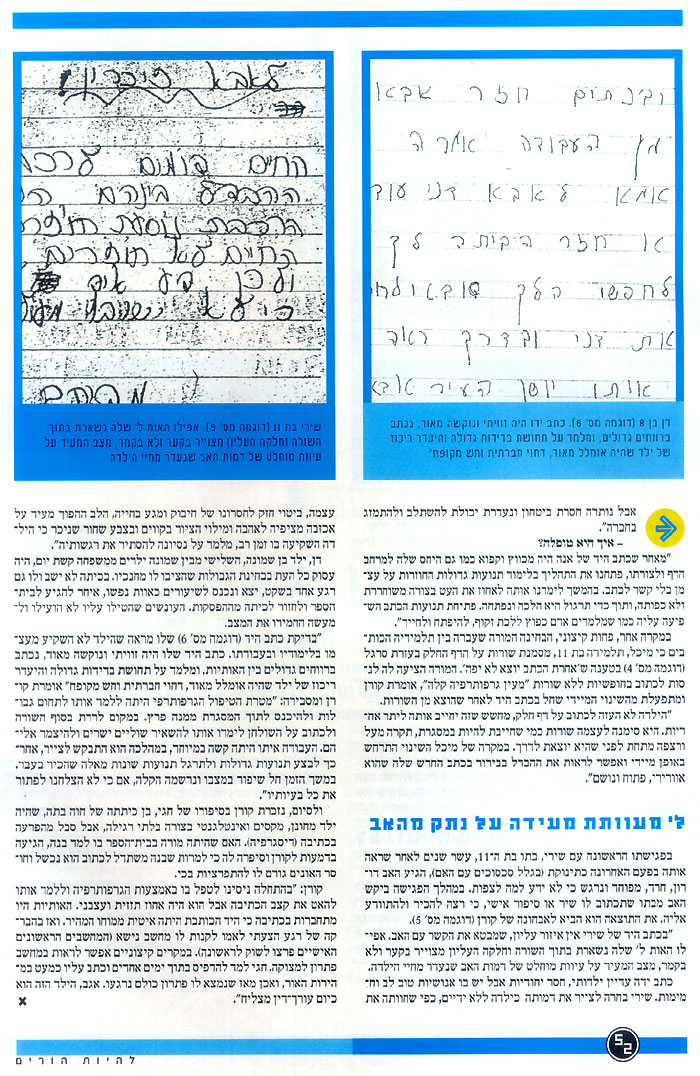 ובנתים חזר אבא
מן העבודה אמרה
אמא לאבא דני עוד
או חזר הביתה לך
לחפשו הלך
את דני ובדרך ראה
אותו ישן העיר
דן בן 8 (דוגמה מס' 6). כתב ידו היה זוויתי ונוקשה מאוד, נכתב
ברווחים גדולים, ומלמד על תחושת בדידות גדולה והיעדר ריכוז
של ילד שהיה אומלל מאוד, דחוי חברתית וחש מקופח"
לאבא
החיים
הורכבת נוסעת
החיים לא
ולכן
שירי בת 11 (דוגמה מס' 5). אפילו האות ל' שלה נשארת בתוך
השורה וחלקה העליון מצוייר בקער ולא בקמר, מצב המעיד על
עיוות מוחלט של דמות האב שנעדר מחיי הילדה
אבל נותרה חסרת ביטחון ונעדרת יכולת להשתלב ולהתמזג
בחברה".
– איך היא טופלה?
"מאחר שכתב היד של אנה היה מכווץ וקפוא כמו גם היחס שלה למרחב
הדף ולצורתו, פתחנו את התהליך בלימוד תנועות גדולות החוזרות על עצ־
מן בלי קשר לכתב. בהמשך לימדנו אותה לאחוז את העט בצורה משוחררת
ולא כפותה, ותוך כדי תרגול היא הלכה ונפתחה. פתיחת תנועות הכתב הש־
פיעה עליה כמו שמלמדים אדם כפוף ללכת זקוף, להיפתח ולחייך".
במקרה אחר, פחות קיצוני, הבחינה המורה שעברה בין תלמידיה הכות־
בים כי מיכל, תלמידה בת 11, מסמנת שורות על הדף החלק בעזרת סרגל
(דוגמה מס' 4) בטענה ש'אחרת הכתב יוצא לא יפה'. המורה הציעה לה לנ־
סות לכתוב בחופשיות ללא שורות "מעין גרפותרפיה קלה", אומרת קורן
ומתפעלת מהשינוי המיידי שחל בכתב היד לאחר שהוצא מן השורות.
"הילדה לא העזה לכתוב על דף חלק, מחשש שזה יחייב אותה ליתר אח־
ריות. היא סימנה לעצמה שורות כמי שחייבת להיות במסגרת, תקרה מעל
ורצפה מתחת לפני שהיא יוצאת לדרך. במקרה של מיכל השינוי התרחש
באופן מיידי ואפשר לראות את ההבדל בבירור בכתב החדש שלה שהוא
אוורירי, פתוח ונושם".
ל' מעוותת מעידה על נתק מהאב
בפגישתו הראשונה עם שירי, בתו בת ה־11, עשר שנים לאחר שראה
אותה בפעם האחרונה כתינוקת (בגלל סכסוכים עם האם), הגיע האב דרו־
רון, חרד, מפוחד ונרגש כי לא ידע למה לצפות. במהלך הפגישה ביקש
האב מבתו שתכתוב לו שיר או סיפור אישי, כי רצה להכיר ולהתוודע
אליה. את התוצאה הוא הביא לאבחונה של קורן (דוגמה מס' 5).
"בכתב היד של שירי אין איזור עליון, שמבטא את הקשר עם האב. אפי־
לו האות ל' שלה נשארת בתוך השורה וחלקה העליון מצוייר בקער ולא
בקמר, מצב המעיד על עיוות מוחלט של דמות האב שנעדר מחיי הילדה.
כתב ידה עדיין ילדותי, חסר יחודיות אבל יש בו אנושיות טוב לב וח־
מימות. שירי בחרה לצייר את דמותה כילדה ללא ידיים, כפי שחוותה את
עצמה, ביטוי חזק לחסרונו של חיבוק ומגע בחייה, הלב ההפוך מעיד על
אכזבה מציפיה לאהבה ומילוי הציור בקווים ובצבע שחור שניכר כי היל־
דה השקיעה בו זמן רב, מלמד על נסיונה להסתיר את רגשותיה".
דן, ילד בן שמונה, השלישי מבין שמונה ילדים ממשפחה קשת יום, היה
עסוק כל העת בבחינת הגבולות שהציבו לו מחנכיו. בכיתה לא ישב ולו גם
רגע אחד בשקט, יצא ונכנס לשיעורים כאוות נפשו, איחר להגיע לבית־
הספר ולחזור לכיתה מההפסקות. העונשים שהטילו עליו לא הועילו ול־
מעשה החמירו את המצב.
"בדיקת כתב היד (דוגמה מס' 6) שלו מראה שהילד לא השקיע מעצ־
מו בלימודיו ובעבודתו. כתב היד שלו היה זוויתי ונוקשה מאוד, נכתב
ברווחים גדולים בין האותיות, ומלמד על תחושת בדידות גדולה והיעדר
ריכוז של ילד שהיה אומלל מאוד, דחוי חברתית וחש מקופח" אומרת קו־
רן ומסבירה: "מטרת הטיפול הגרפותרפי היתה ללמד אותו לתחום גבו־
לות ולהיכנס לתוך המסגרת ממנה פרץ. במקום לרדת בסוף השורה
ולכתוב על השולחן לימדו אותו להשאיר שוליים ישרים ולהיצמד אלי־
הם. העבודה איתו היתה קשה במיוחד, במהלכה הוא התבקש לצייר, אחר־
כך לבצע תנועות גדולות ולתרגל תנועות שונות מאלה שהכיר בעבר.
במשך הזמן חל שיפור במצבו ונרשמה הקלה, אם כי לא הצלחנו לפתור
את כל בעיותיו".
ולסיום, נזכרת קורן בסיפורו של חגי, בן כיתתה של חוה בתה, שהיה
ילד מחונן, מקסים ואינטלגנטי בצורה בלתי רגילה, אבל סבל מהפרעה
בכתיבה (דיסגרפיה). האם שהיתה מורה בבית־הספר בו למד בנה, הגיעה
בדמעות לקורן וסיפרה לה כי למרות שבנה משתדל לכתוב הוא נכשל וחו־
סר האונים גורם לו להתפרצויות בכי.
קורן: "בהתחלה ניסינו לטפל בו באמצעות הגרפותרפיה וללמד אותו
להאט את קצב הכתיבה אבל הוא היה אחוז תזזית ועצבני. האותיות היו
מתחברות בכתיבה כי היד הכותבת היתה איטית ממוחו המהיר. ואז בהבר־
קה של רגע הצעתי לאמו לקנות לו מחשב נישא (המחשבים הראשונים
האישיים פרצו לשוק לראשונה). במקרים קיצוניים אפשר לראות במחשב
פתרון למצוקה. חגי למד להדפיס בתוך ימים אחדים וכתב עליו כמעט במ־
הירות האור, ואכן מאז שנמצא לו פתרון כולם נרגעו. אגב, הילד הזה הוא
כיום עורך־דין מצליח".
52
להיות הורים